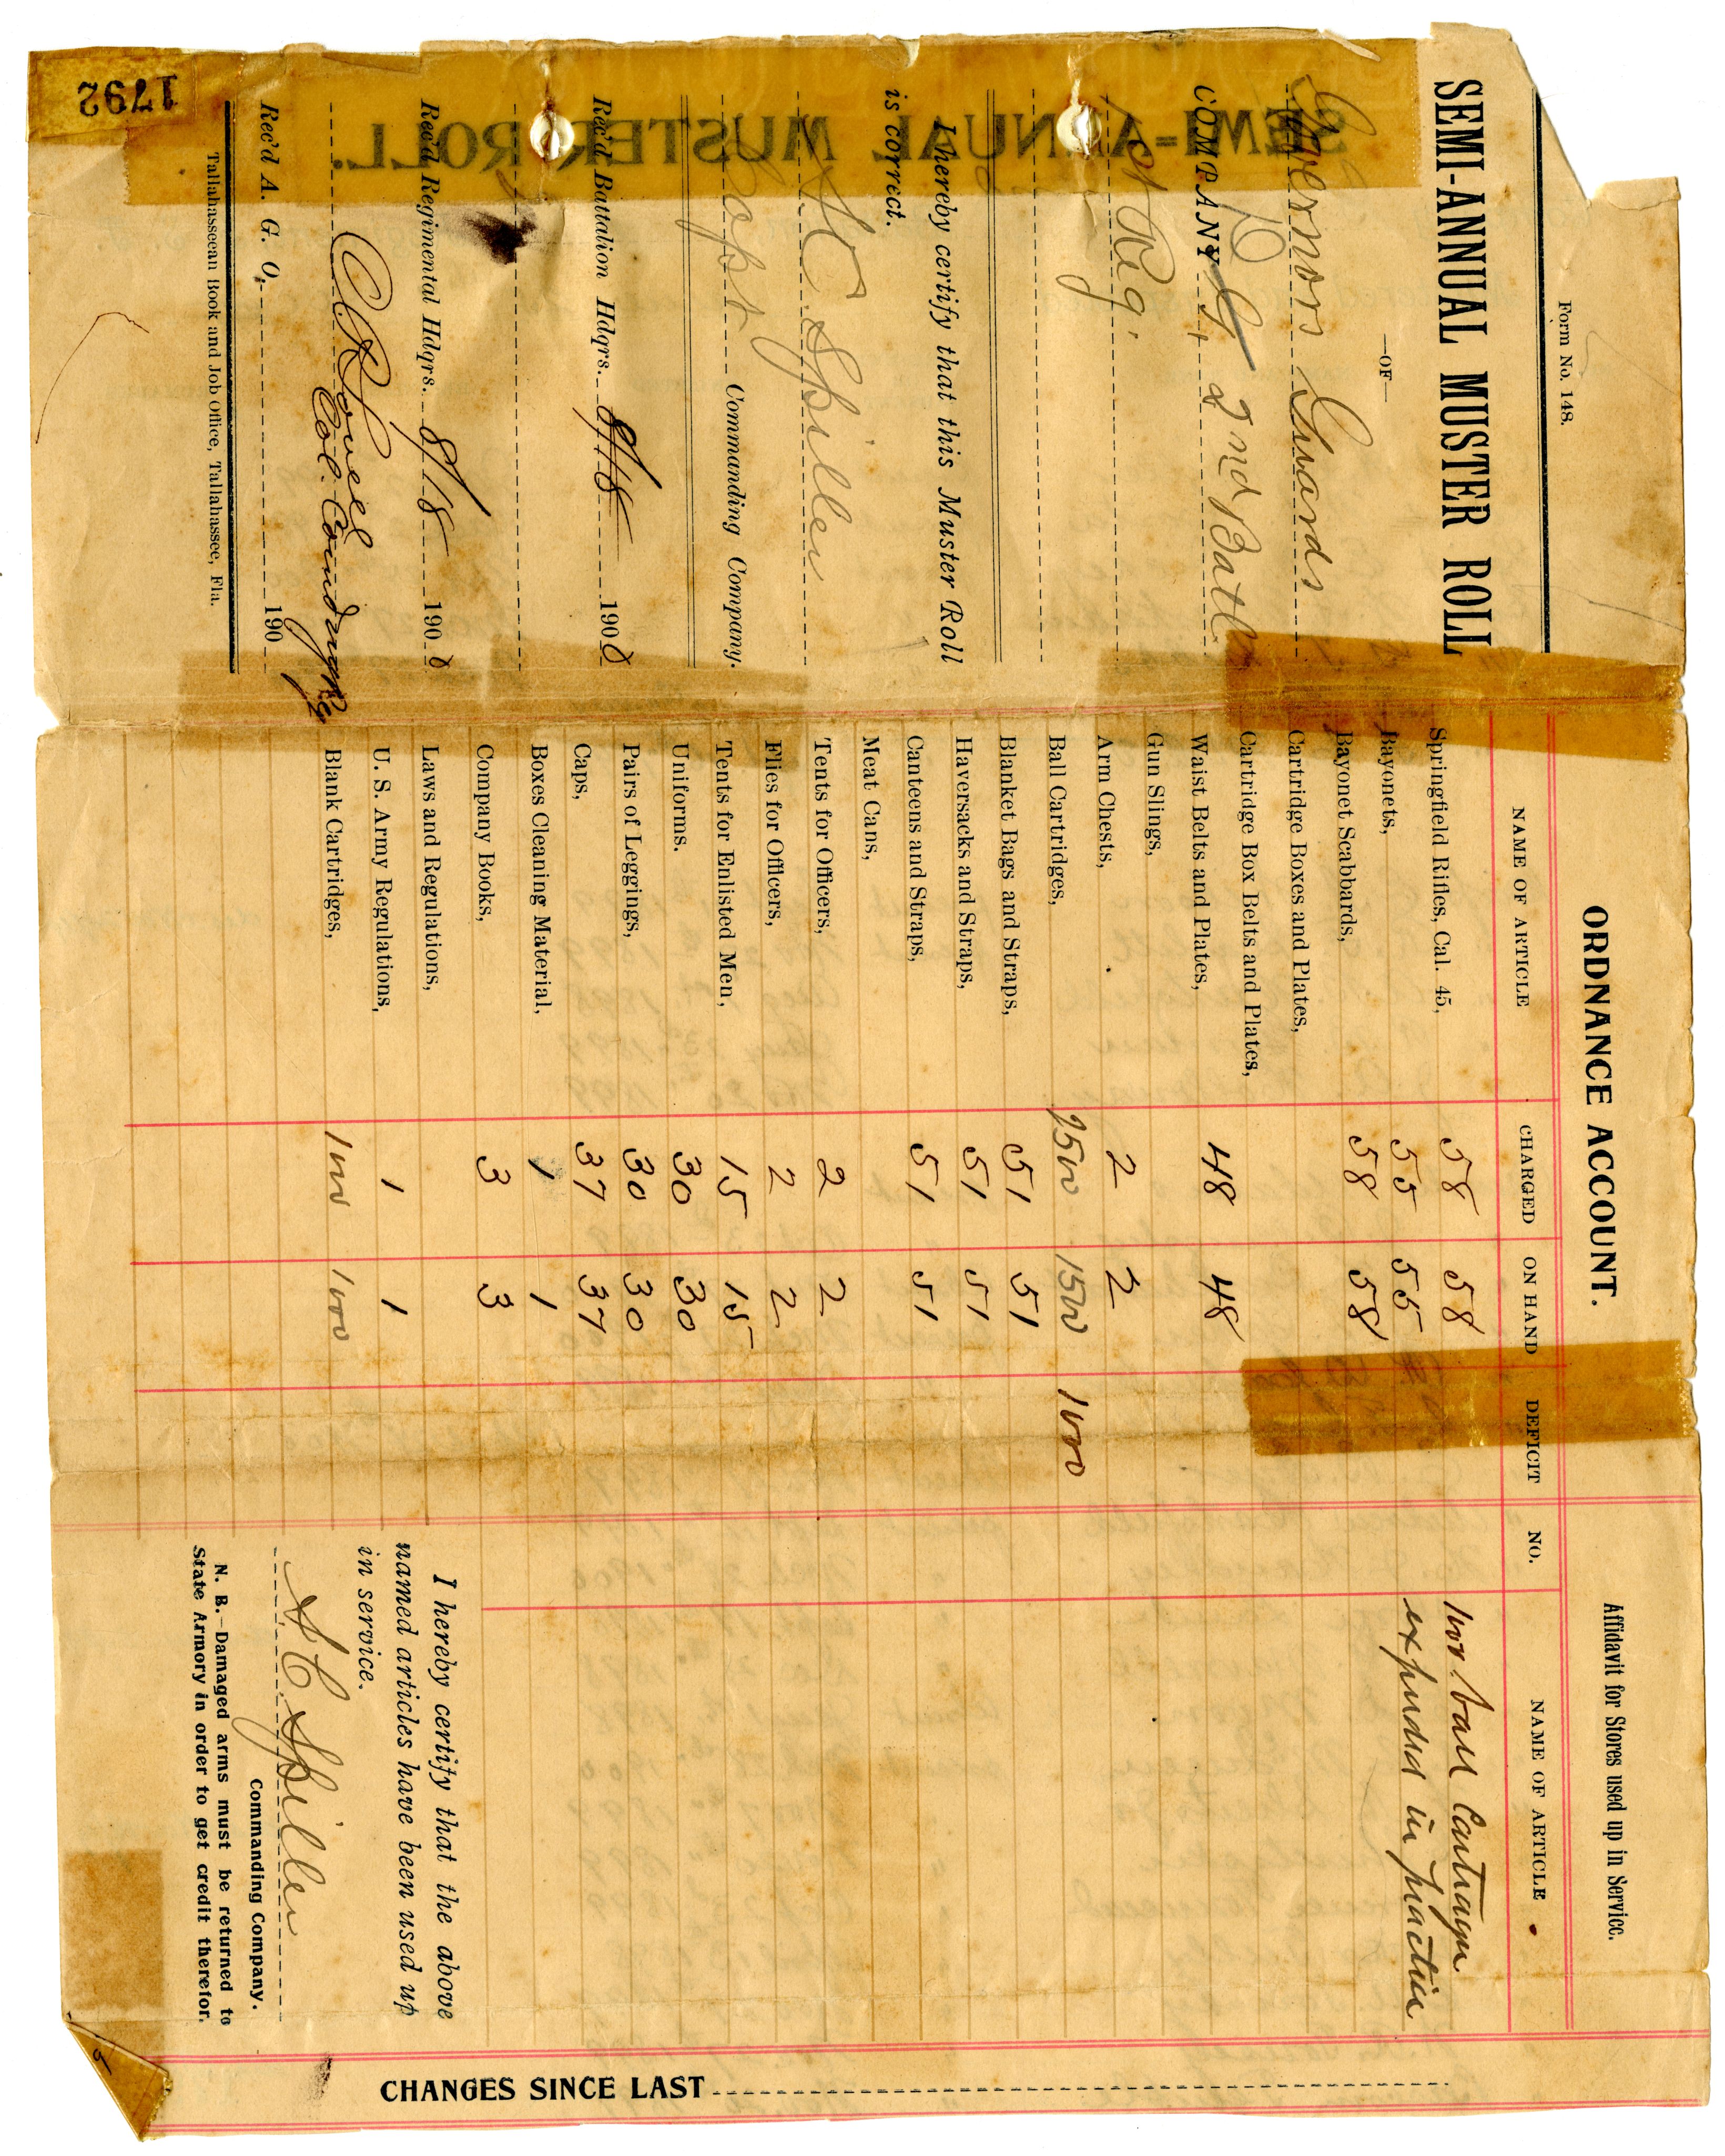 Form No. 148.
SEMI-ANNUAL MUSTER ROLL
—OF—
Governors Guards
COMPANY G, 2nd Batl
1st Reg.
I hereby certify that this Muster Roll
is correct.
A C Spiller
Capt Commanding Company.
Rec'd Battalion Hdqrs. 8/18 1900
Rec'd Regimental Hdqrs. 8/18 1900
Col. Comdng
Rec'd A. G. O, 190
Tallahasseean Book and Job Office, Tallahassee, Fla.
1792
SEMI-ANNUAL MUSTER ROLL.
ORDNANCE ACCOUNT.
NAME OF ARTICLE CHARGED ON HAND DEFICIT
Springfield Rifles, Cal. 45, 58 58
Bayonets, 55 55
Bayonet Scabbards, 58 58
Cartridge Boxes and Plates,
Cartridge Box Belts and Plates,
Waist Belts and Plates, 48 48
Gun Slings,
Arm Chests, 2 2
Ball Cartridges, 2500 1500 1000
Blanket Bags and Straps, 51 51
Haversacks and Straps, 51 51
Canteens and Straps, 51 51
Meat Cans,
Tents for Officers, 2 2
Flies for Officers, 2 2
Tents for Enlisted Men, 15 15
Uniforms. 30 30
Pairs of Leggings, 30 30
Caps, 37 37
Boxes Cleaning Material, 1 1
Company Books, 3 3
Laws and Regulations,
U. S. Army Regulations, 1 1
Blank Cartridges, 1000 1000
Affidavit for Stores used up in Service.
NO. NAME OF ARTICLE
1000 ball Cartrages
expended in practice
I hereby certify that the above
named articles have been used up
in service.
A C Spiller
Commanding Company.
N. B.—Damaged arms must be returned to
State Armory in order to get credit therefor.
CHANGES SINCE LAST